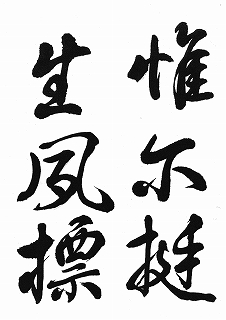 惟尔挺
生夙標